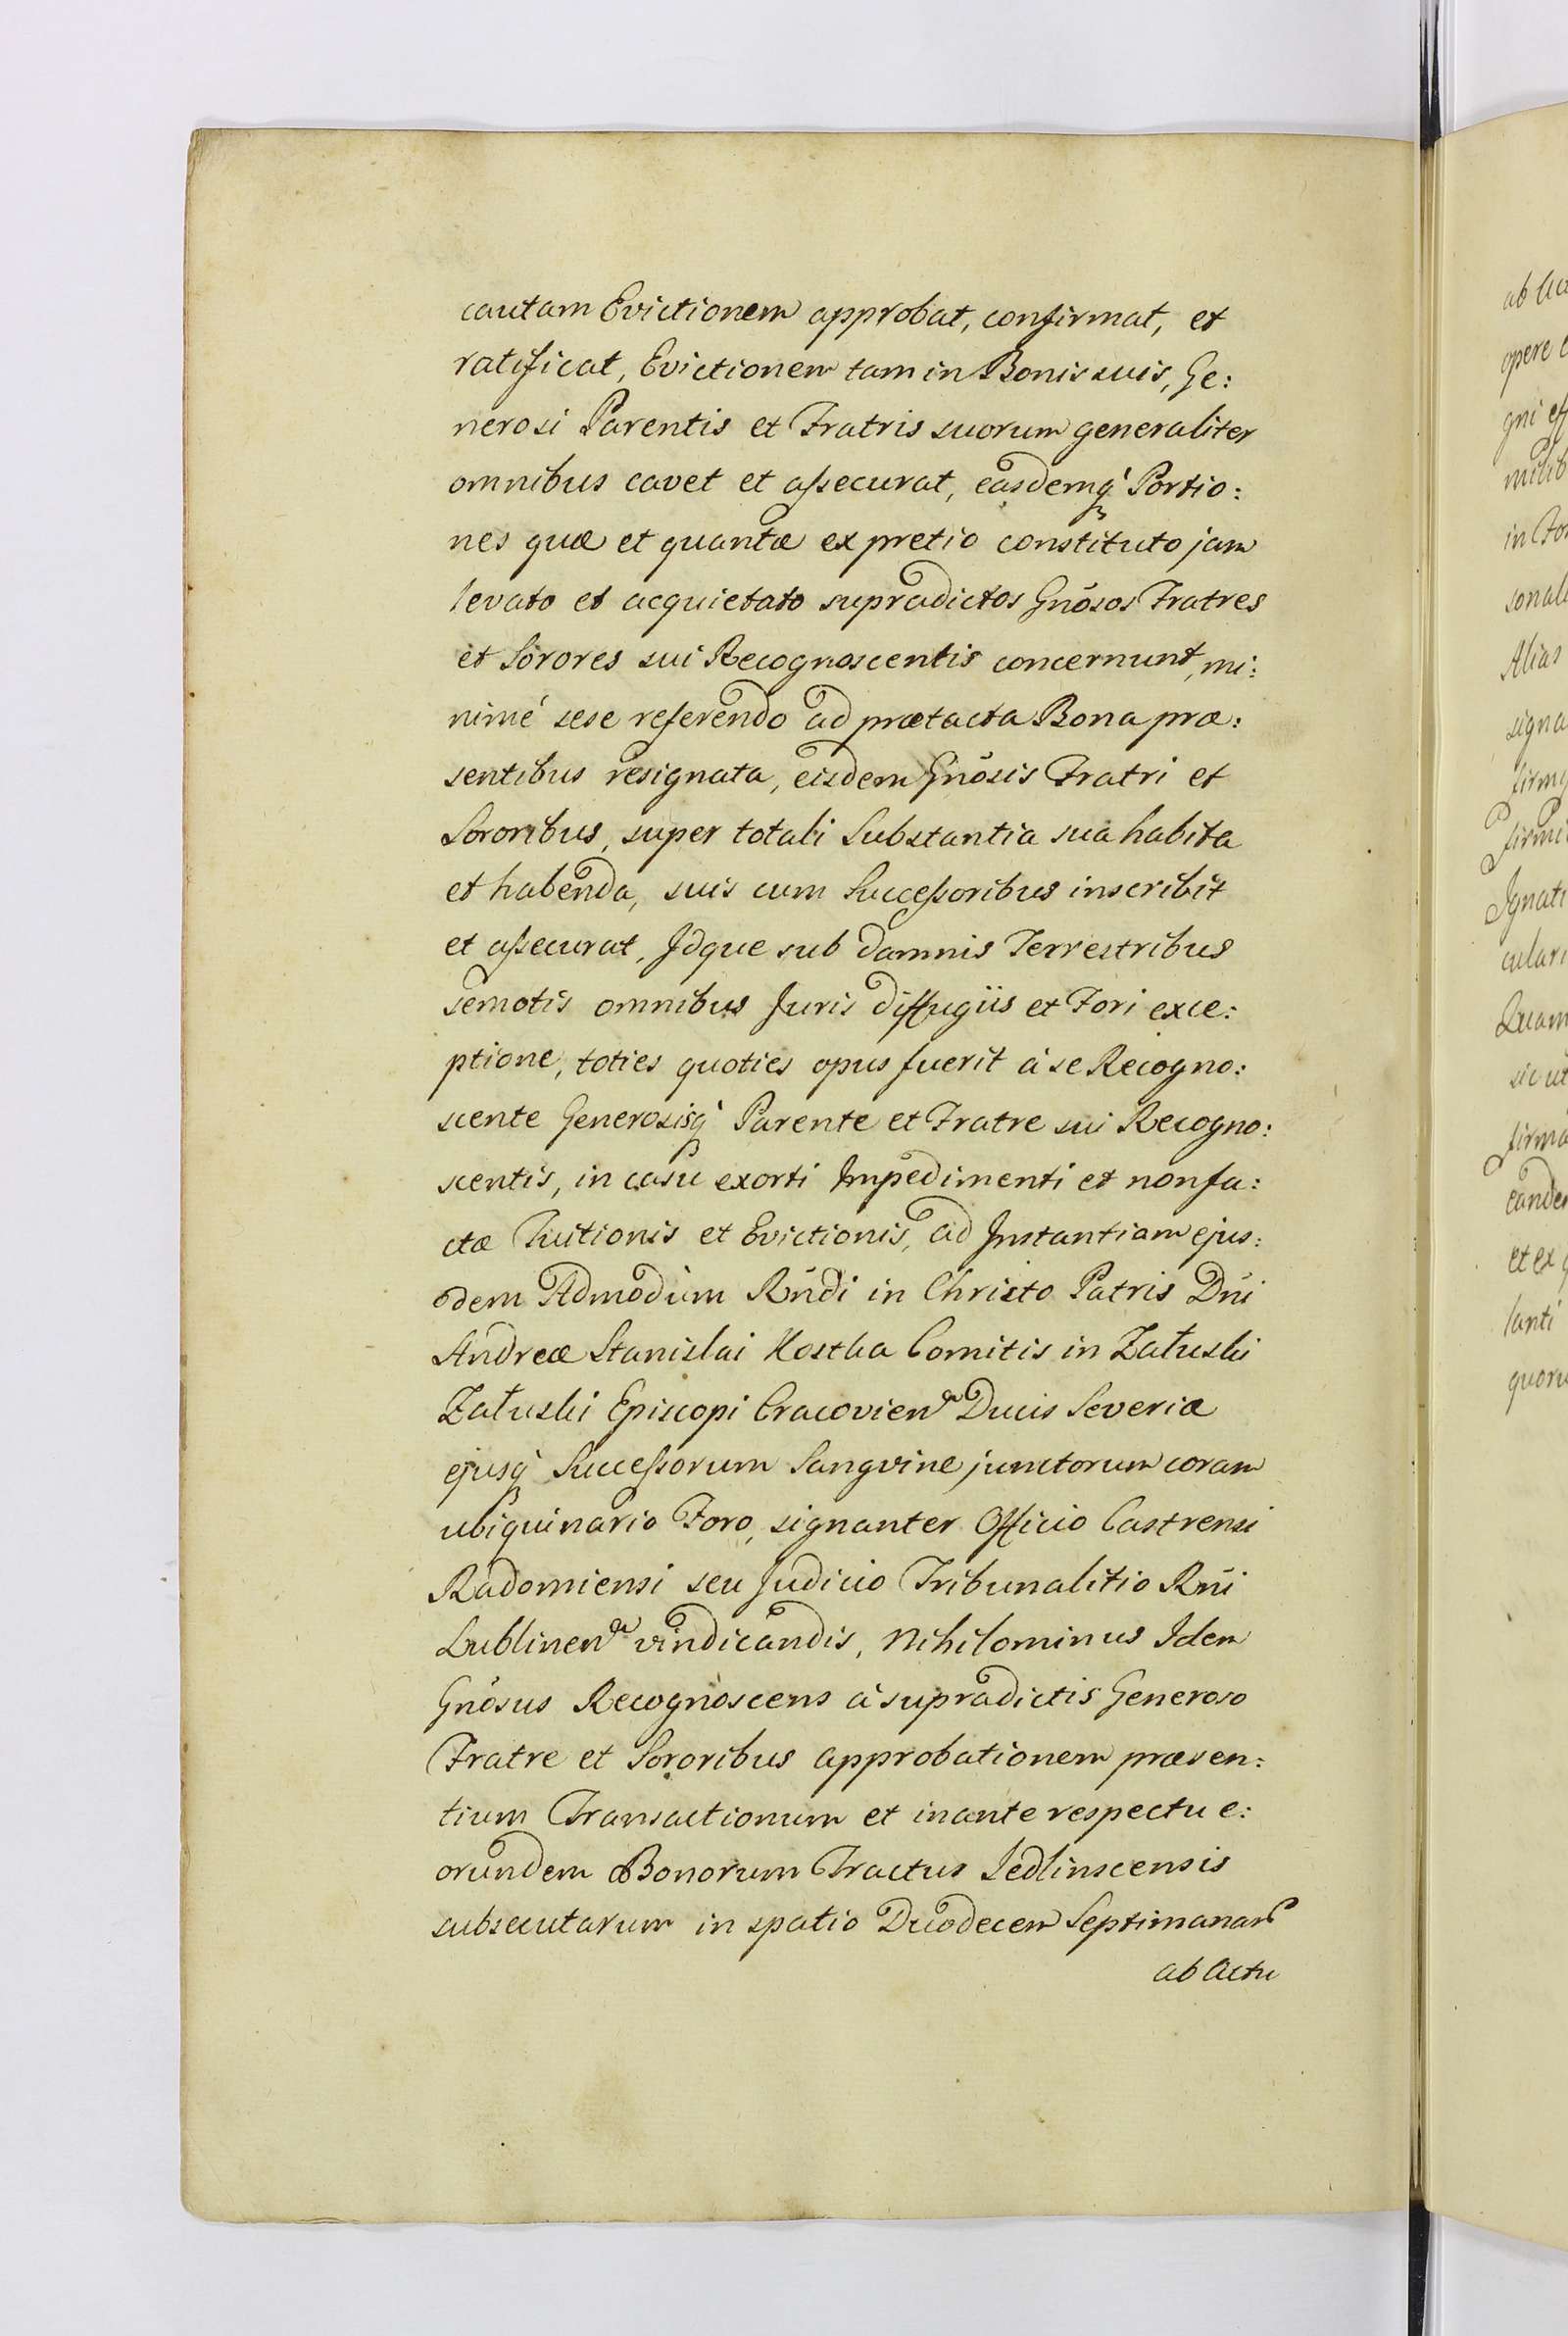 cautam Evictionem approbat, confirmat, et
ratificat, Evictionem tam in Bonis suis, Ge:
nerosi Parentis et Fratris suorum generaliter
omnibus cavet et aſsecurat, easdemq́ Portio:
nes quæ et quantæ ex pretio constituto jam
levato et acquietato supradictos Gnōsos Fratres
et Sorores sui Recognoscentis concernunt, mi:
nimé sese referendo ad prætacta Bona præ:
sentibus resignata, eisdem Gnōsis Fratri et
Sororibus, super totali Substantia sua habita
et habenda, suis cum Succeſsoribus inscribit
et aſsecurat, Idque sub damnis Terrestribus
semotis omnibus Juris diffugiis et Fori exce:
ptione, toties quoties opus fuerit à se Recogno:
scente Generosisq́ Parente et Fratre sui Recogno:
scentis, in casu exorti Impedimenti et non fa:
ctæ Tuitionis et Evictionis, ad Instantiam ejus:
dem Admodùm Rńdi in Christo Patris Dńi
Andreæ Stanislai Kostka Comitis in Załuski
Załuski Episcopi Cracovien̄ Ducis Severiæ
ejusq́ Succeſsorum Sangvine junctorum coram
ubiquinario Foro, signanter Officio Castrensi
Radomiensi seu Judicio Tribunalitio Rńi
Lublinen̄ vindicandis, Nihilominus Idem
Gnōsus Recognoscens à supradictis Generoso
Fratre et Sororibus approbationem præsen:
tium Transactionum et inante respectu e:
orundem Bonorum Tractus Jedlinscensis
subsecutarum in spatio Duodecem Septimanar̄
ab Actu
ab
opere
gni
in
sonal
Alias
signa
firm
Ignati
culari
Quam
sic ut
firma
et ex
lanti
quoru